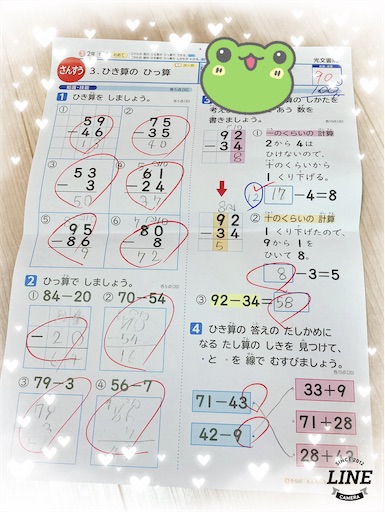 2年
光文書院
さんすう
3.ひき算の ひっ算
90
100
1 ひき算を しましょう。
① 59
-46
13
② 75
-35
40
③ 53
-3
50
④ 61
-24
37
⑤ 95
-86
9
⑥ 80
-8
72
2 ひっ算で しましょう。
① 84-20 ② 70-54
③ 79-3 ④ 56-7
3
ひき算の しかたを
考え
あう 数を
書きましょう。
92
34
① 一のくらいの 計算
2から 4は
ひけないので、
十のくらいから
1 くり下げる。
12 17 -4=8
92
-34
5
② 十のくらいの 計算
1 くり下げたので、
9から 1を
ひいて 8。
8 -3=5
③ 92-34= 58
4 ひき算の 答えの たしかめに
なる たし算の しきを 見つけて、
・と ・を 線で むすびましょう。
71-43
42-9
33+9
71+28
28+43
SINCE 2012
LINE
CAMERA